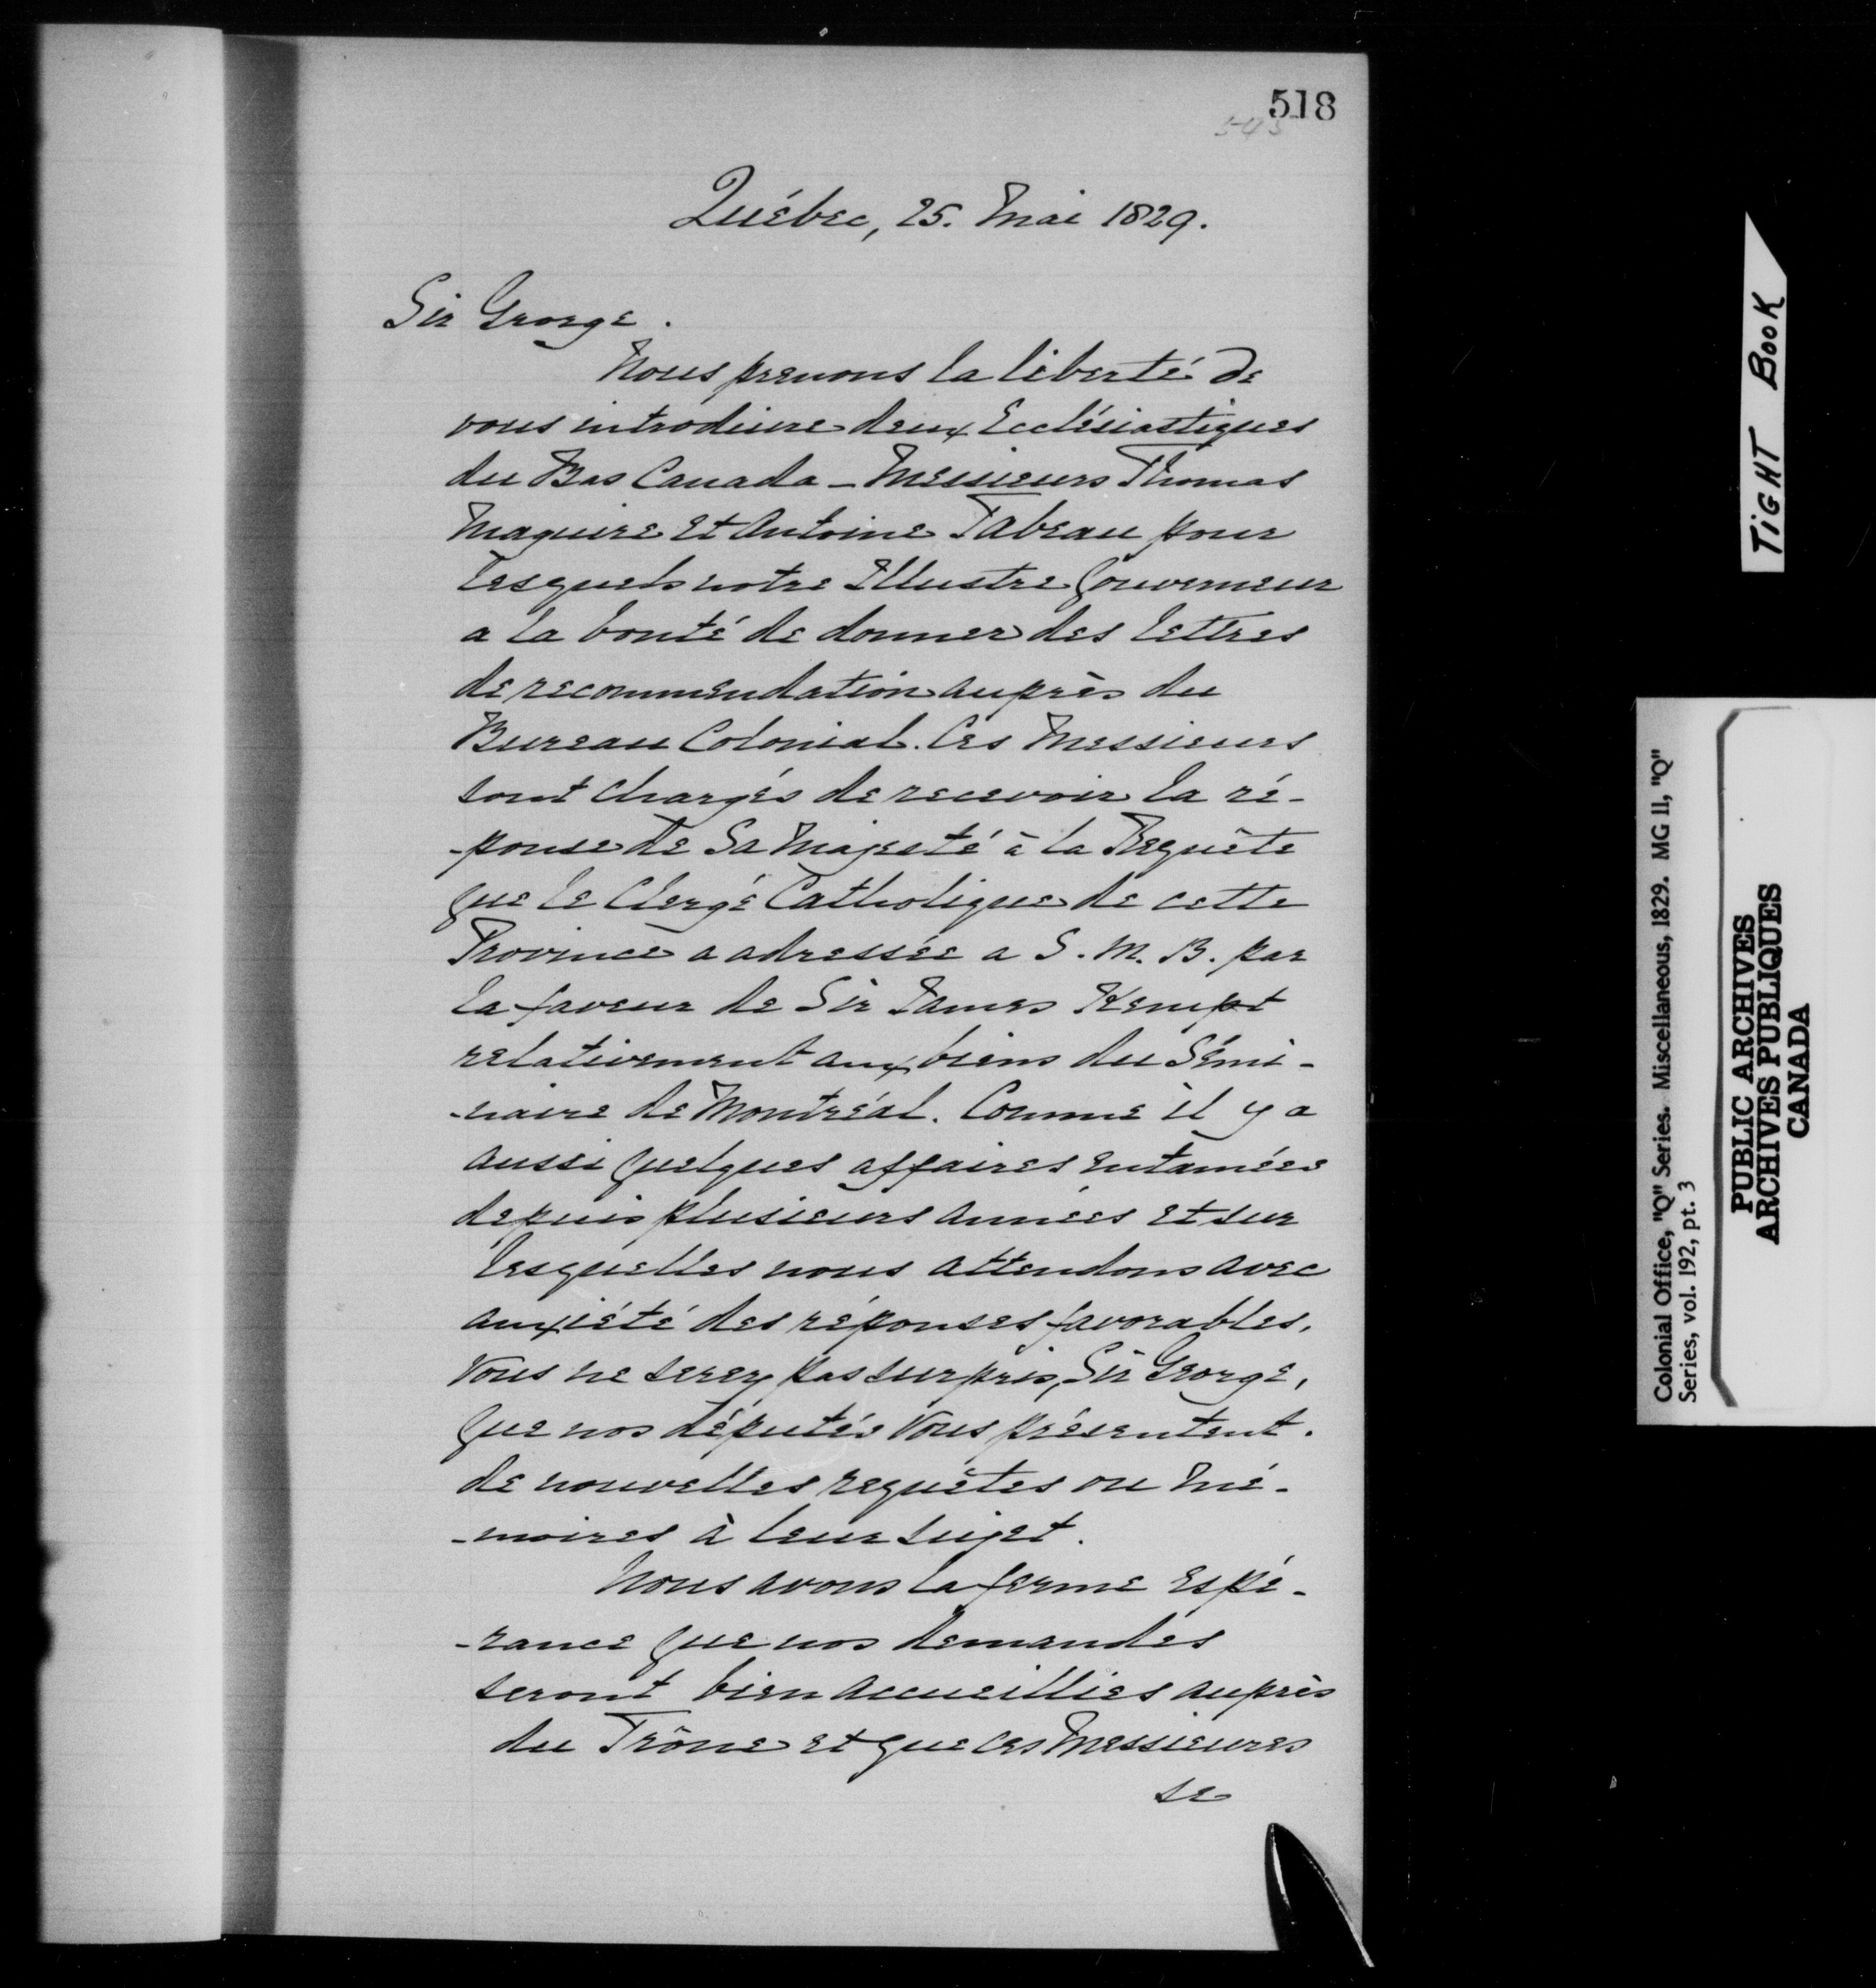 518
545
Québec, 25. Mai 1829.
Sir George.
Nous prenons la liberté de
vous introduire deux Ecclésiastiques
du Bas Canada - Messieurs Thomas
Maguire et Antoine Tabeau pour
lesquels notre Illustre Gouverneur
a la bonté de donner des lettres
de recommendation auprès du
Bureau Colonial. Ces Messieurs
sont chargés de recevoir la ré-
-ponse de Sa Majesté à la Requête
que le Clergé Catholique de cette
Province a adressée a S. M. B. par
la faveur de Sir James Kempt
relativement aux biens du Sémi-
-naire de Montréal. Comme il y a
aussi quelques affaires entamées
depuis plusieurs années et sur
lesquelles nous attendons avec
anxiété des réponses favorables,
Vous ne serez pas surpris, Sir George,
que nos députés Vous présentent.
de nouvelles requêtes ou Mé-
-moires à leur sujet.
Nous avons la ferme espé-
-rance que nos demandes
seront bien accueillies auprès
du Trône et que ces Messieures
se
TIGHT BOOK
Colonial Office, "Q" Series. Miscellaneous, 1829. MG 11, "Q"
Series, vol. 192, pt. 3
PUBLIC ARCHIVES
ARCHIVES PUBLIQUES
CANADA